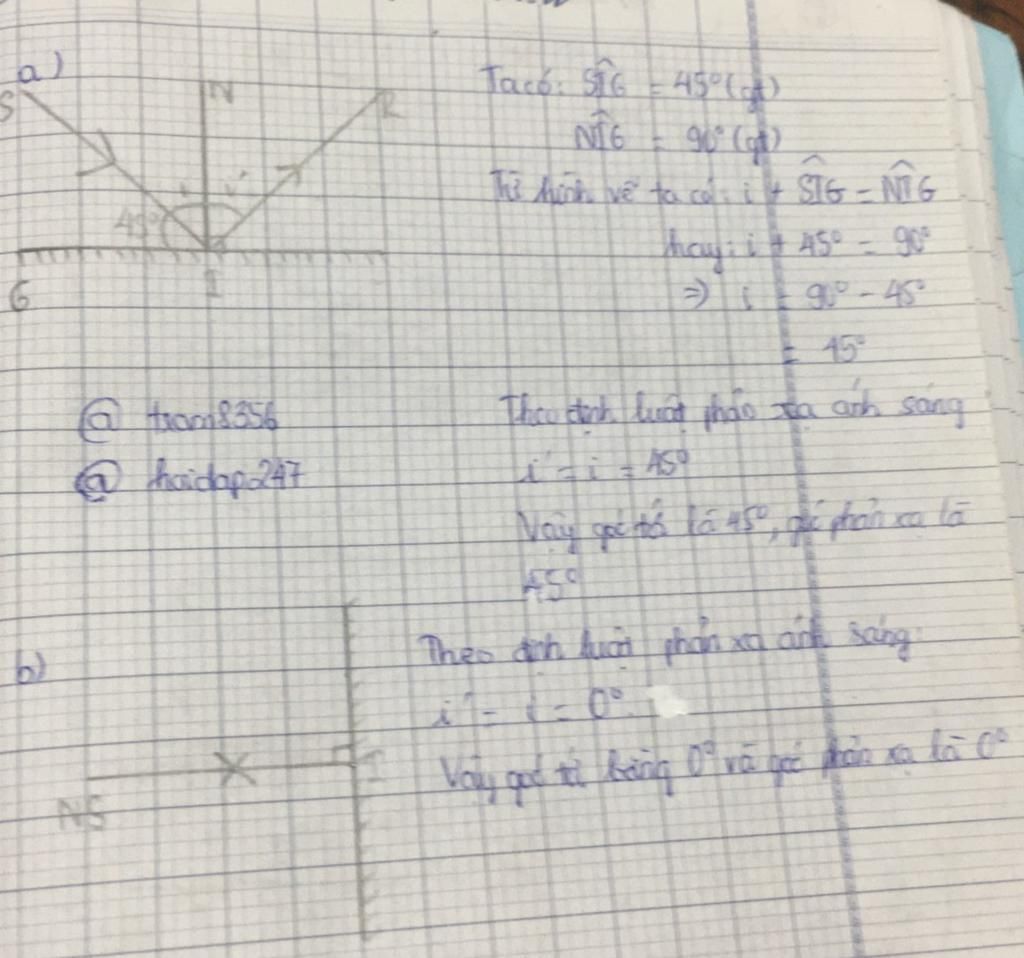 a)
S
N
R
i
i'
45°
I
G
Ta có: SÎG = 45° (gt)
NÎG = 90° (gt)
Từ hình vẽ ta có: i + SÎG = NÎG
hay: i + 45° = 90°
=> i = 90° - 45°
= 45°
@ tram8356
@ hoidap247
Theo định luật phản xạ ánh sáng
i' = i = 45°
Vậy góc tới là 45°, góc phản xạ là
45°
b)
NS
I
Theo định luật phản xạ ánh sáng:
i' = i = 0°
Vậy góc tới bằng 0° và góc phản xạ là 0°